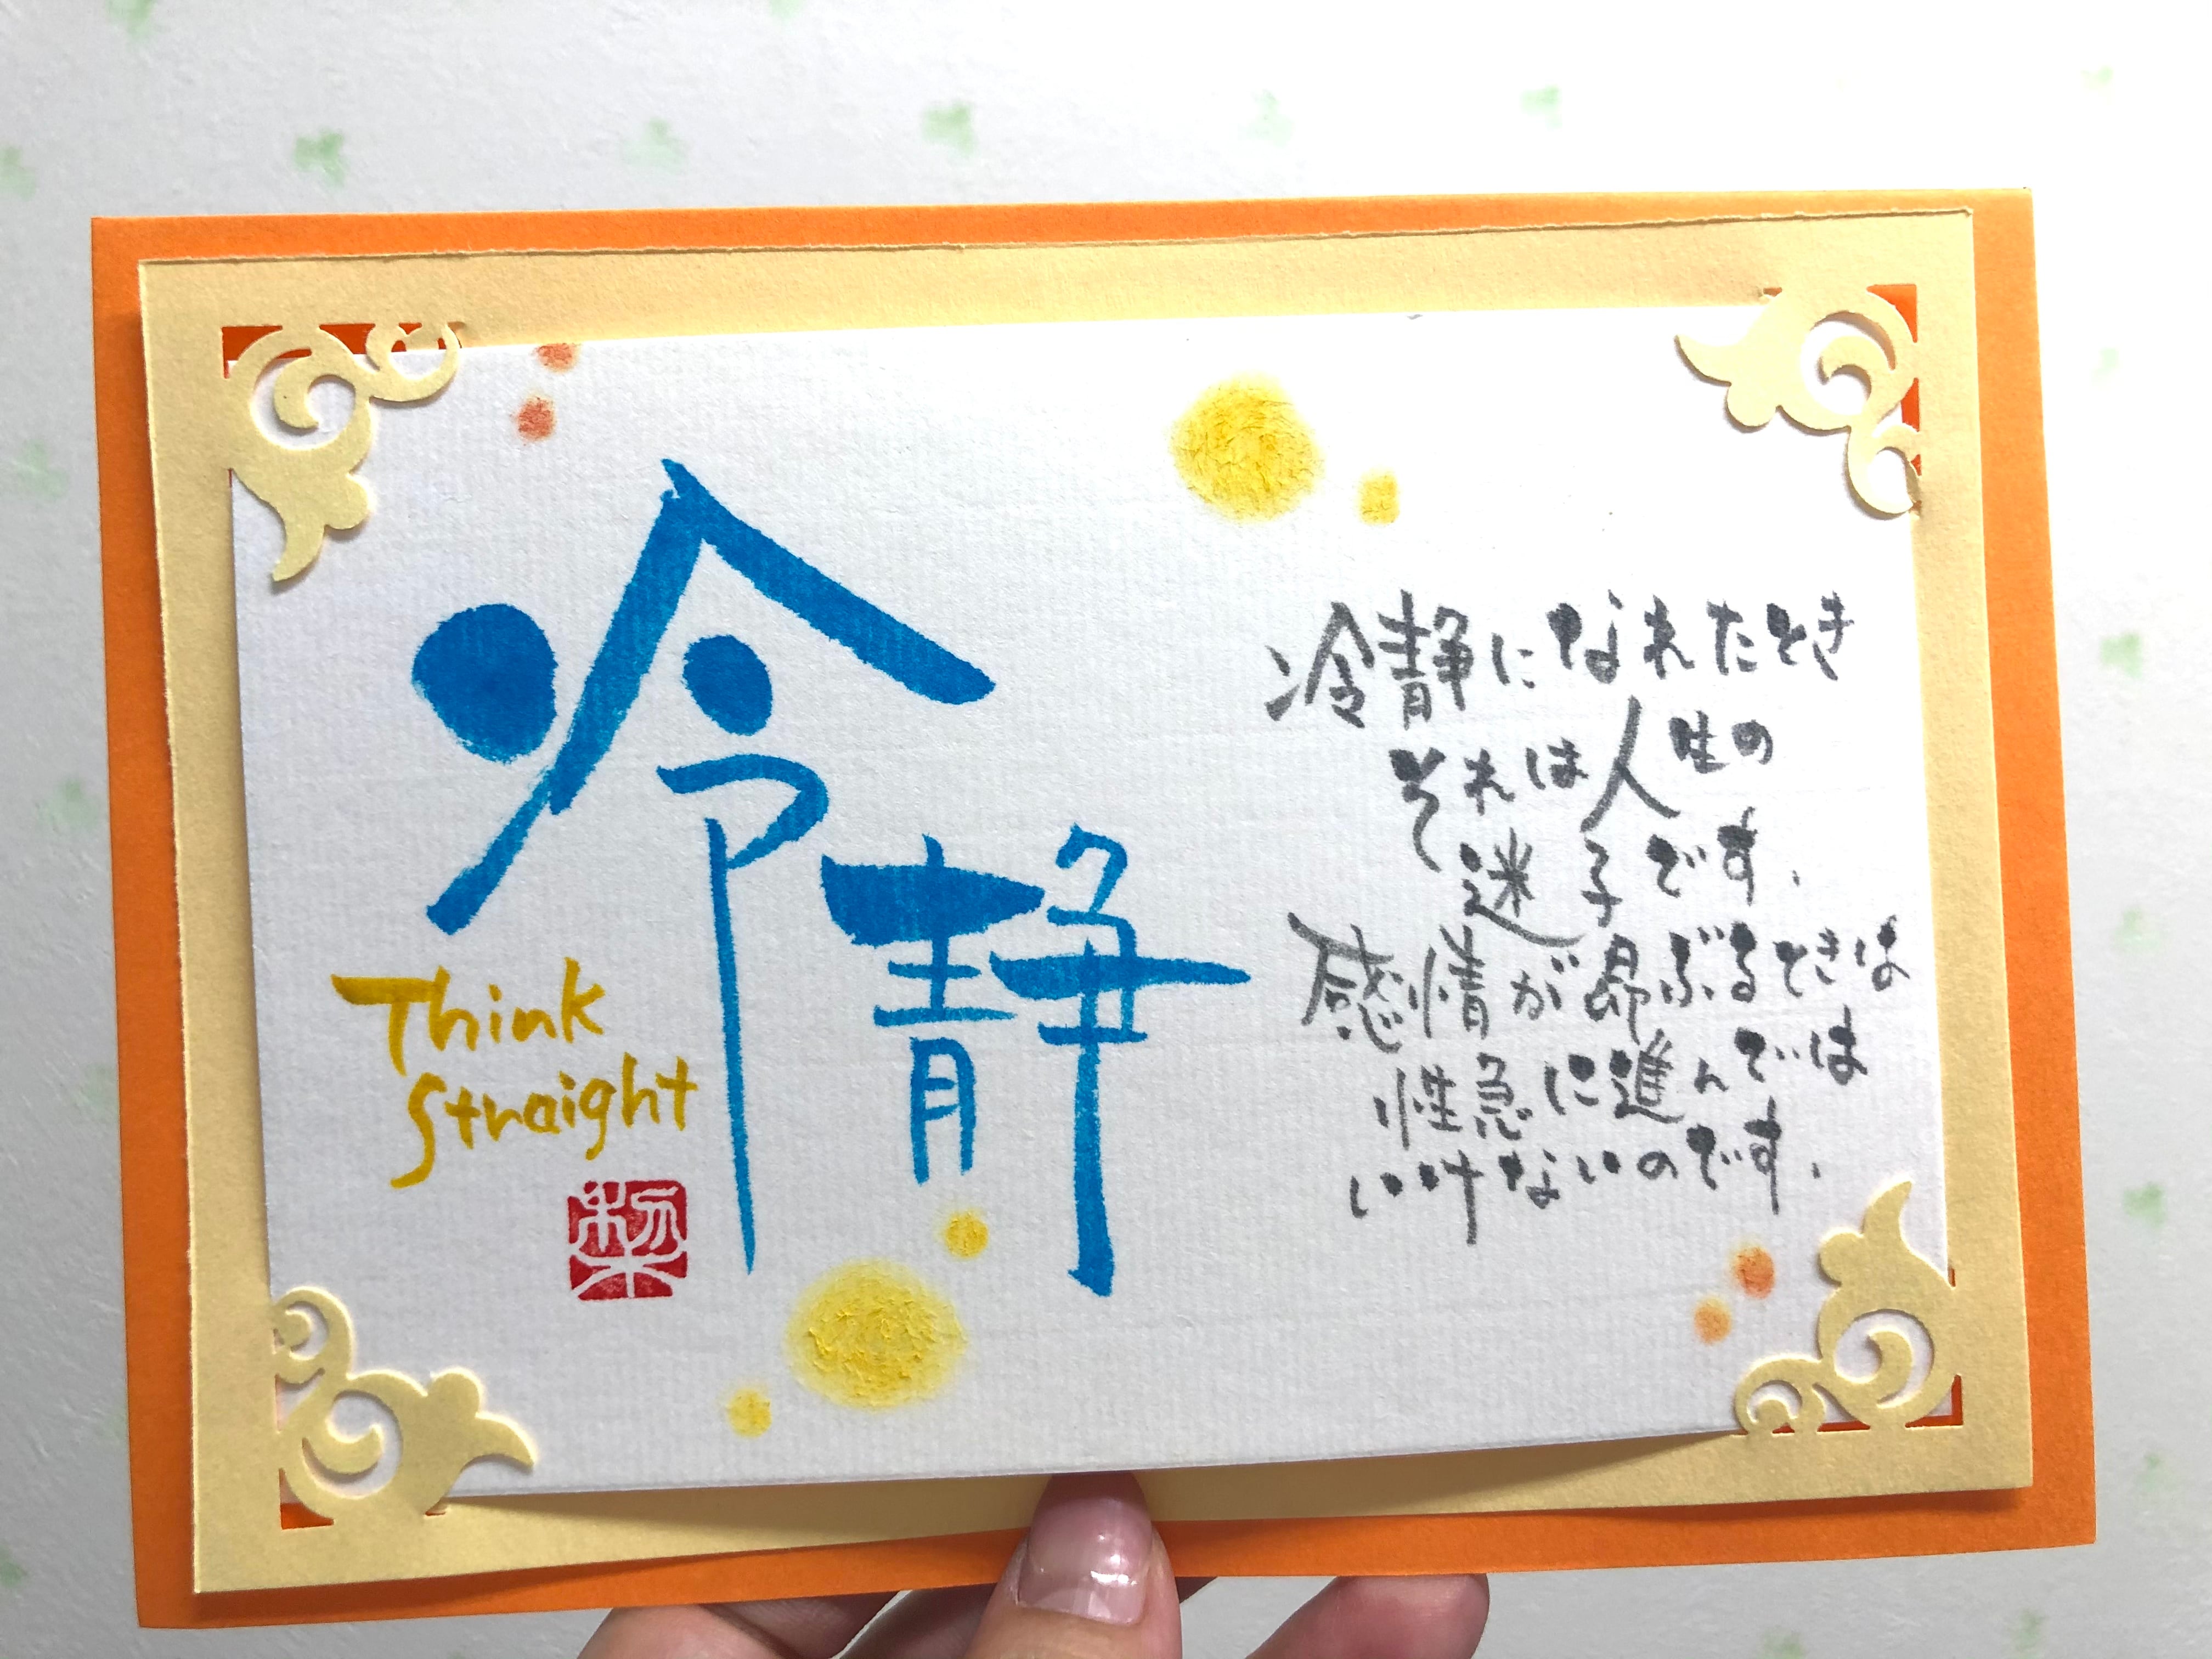 冷静
Think
Straight
冷静になれたとき
それは人生の
迷子です.
感情が昂ぶるときは
性急に進んでは
いけないのです.